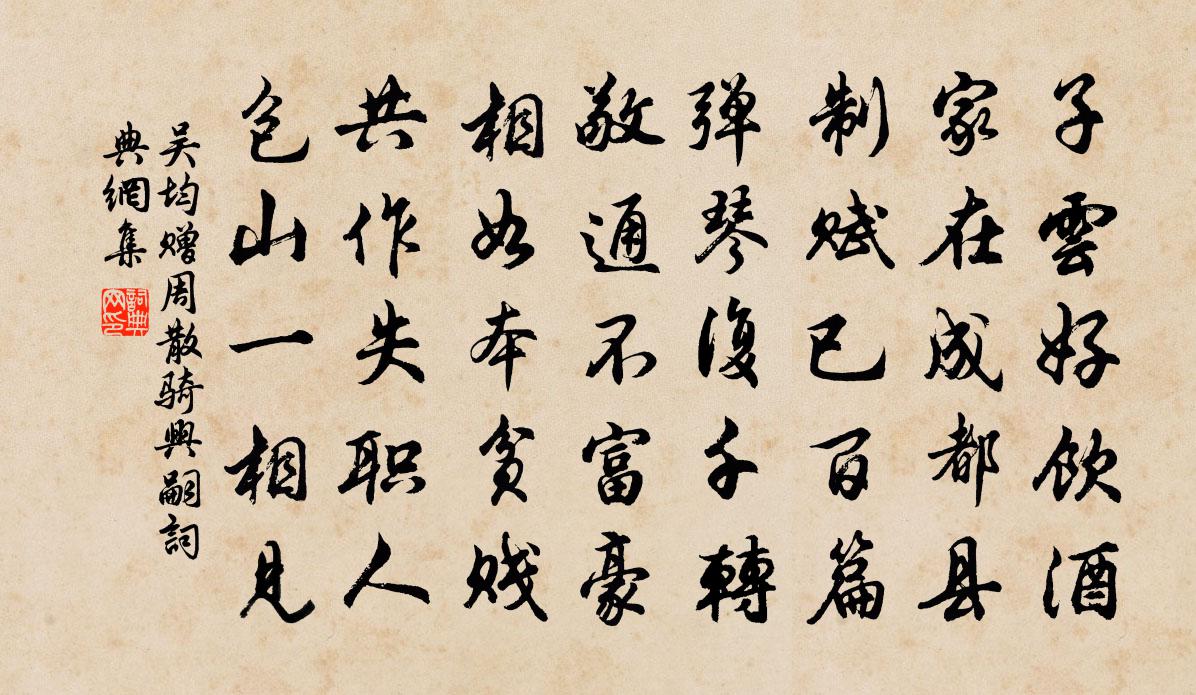 子雲好飲酒
家在成都县
制赋已百篇
弹琴復千轉
敬通不富豪
相如本貧贱
共作失职人
包山一相見
吴均赠周散骑興嗣詞
典網集
詞典网印